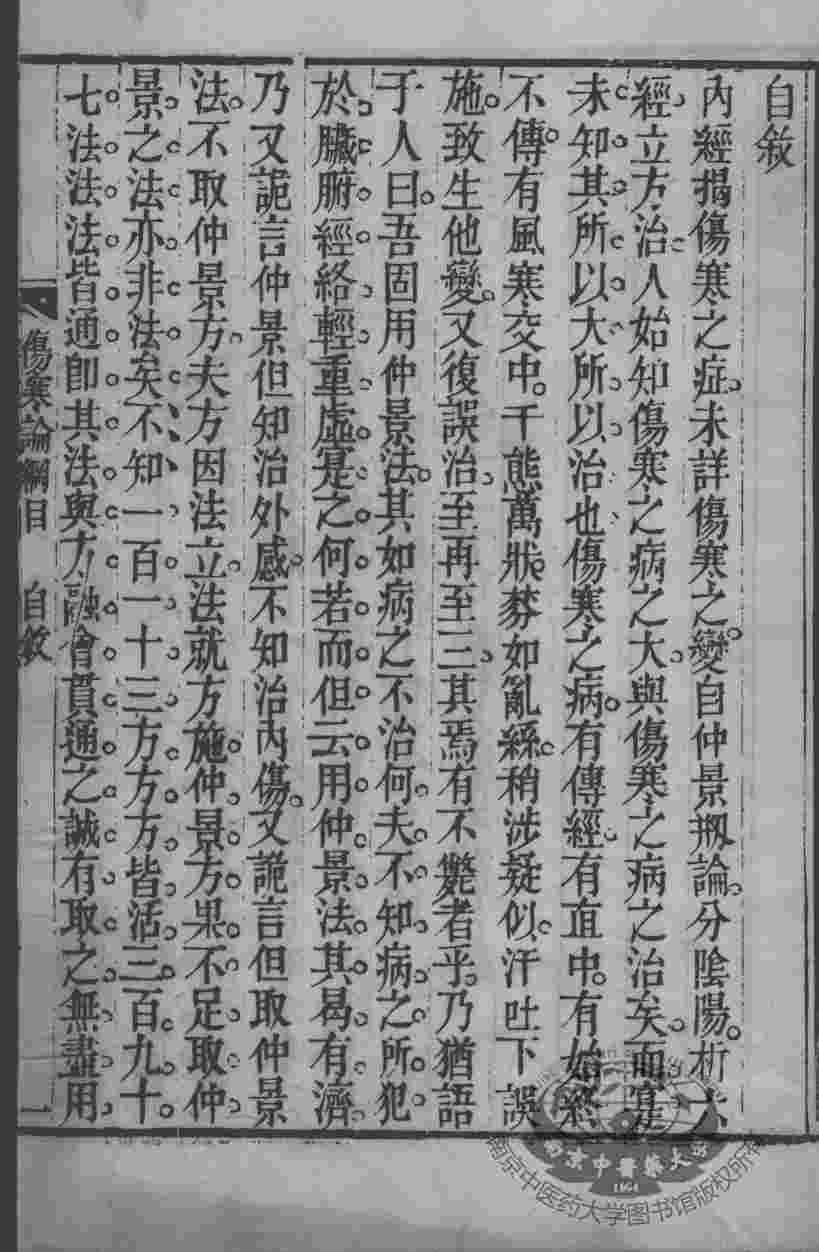 自敘
內經揭傷寒之症。未詳傷寒之。變自仲景刱論。分陰陽。析六
經。立方。治人始知傷寒之病之大。與傷寒之病之治矣。而寔
未知其所以大。所以治也傷寒之病。有傳經。有直中。有始終
不傳。有風寒交中。千態萬狀。棼如亂絲。稍涉疑似。汗吐下誤
施。致生他變。又復誤治。至再至三。其焉有不斃者乎。乃猶語
于人曰。吾固用仲景法。其如病之不治何。夫不知病之所犯
於臟腑經絡輕重虛寔之何若而但云用仲景法。其曷有濟
乃又詭言仲景但知治外感。不知治內傷。又詭言但取仲景
法。不取仲景方。夫方因法立。法就方施。仲景方果不足取仲
景之法亦非法矣不知一百一十三方方方皆活。三百九十
七法法法皆通即其法與方融會貫通之。誠有取之無盡用
傷寒論綱目 自敘 一
南京中醫藥大學
1954
南京中医药大学图书馆版权所有